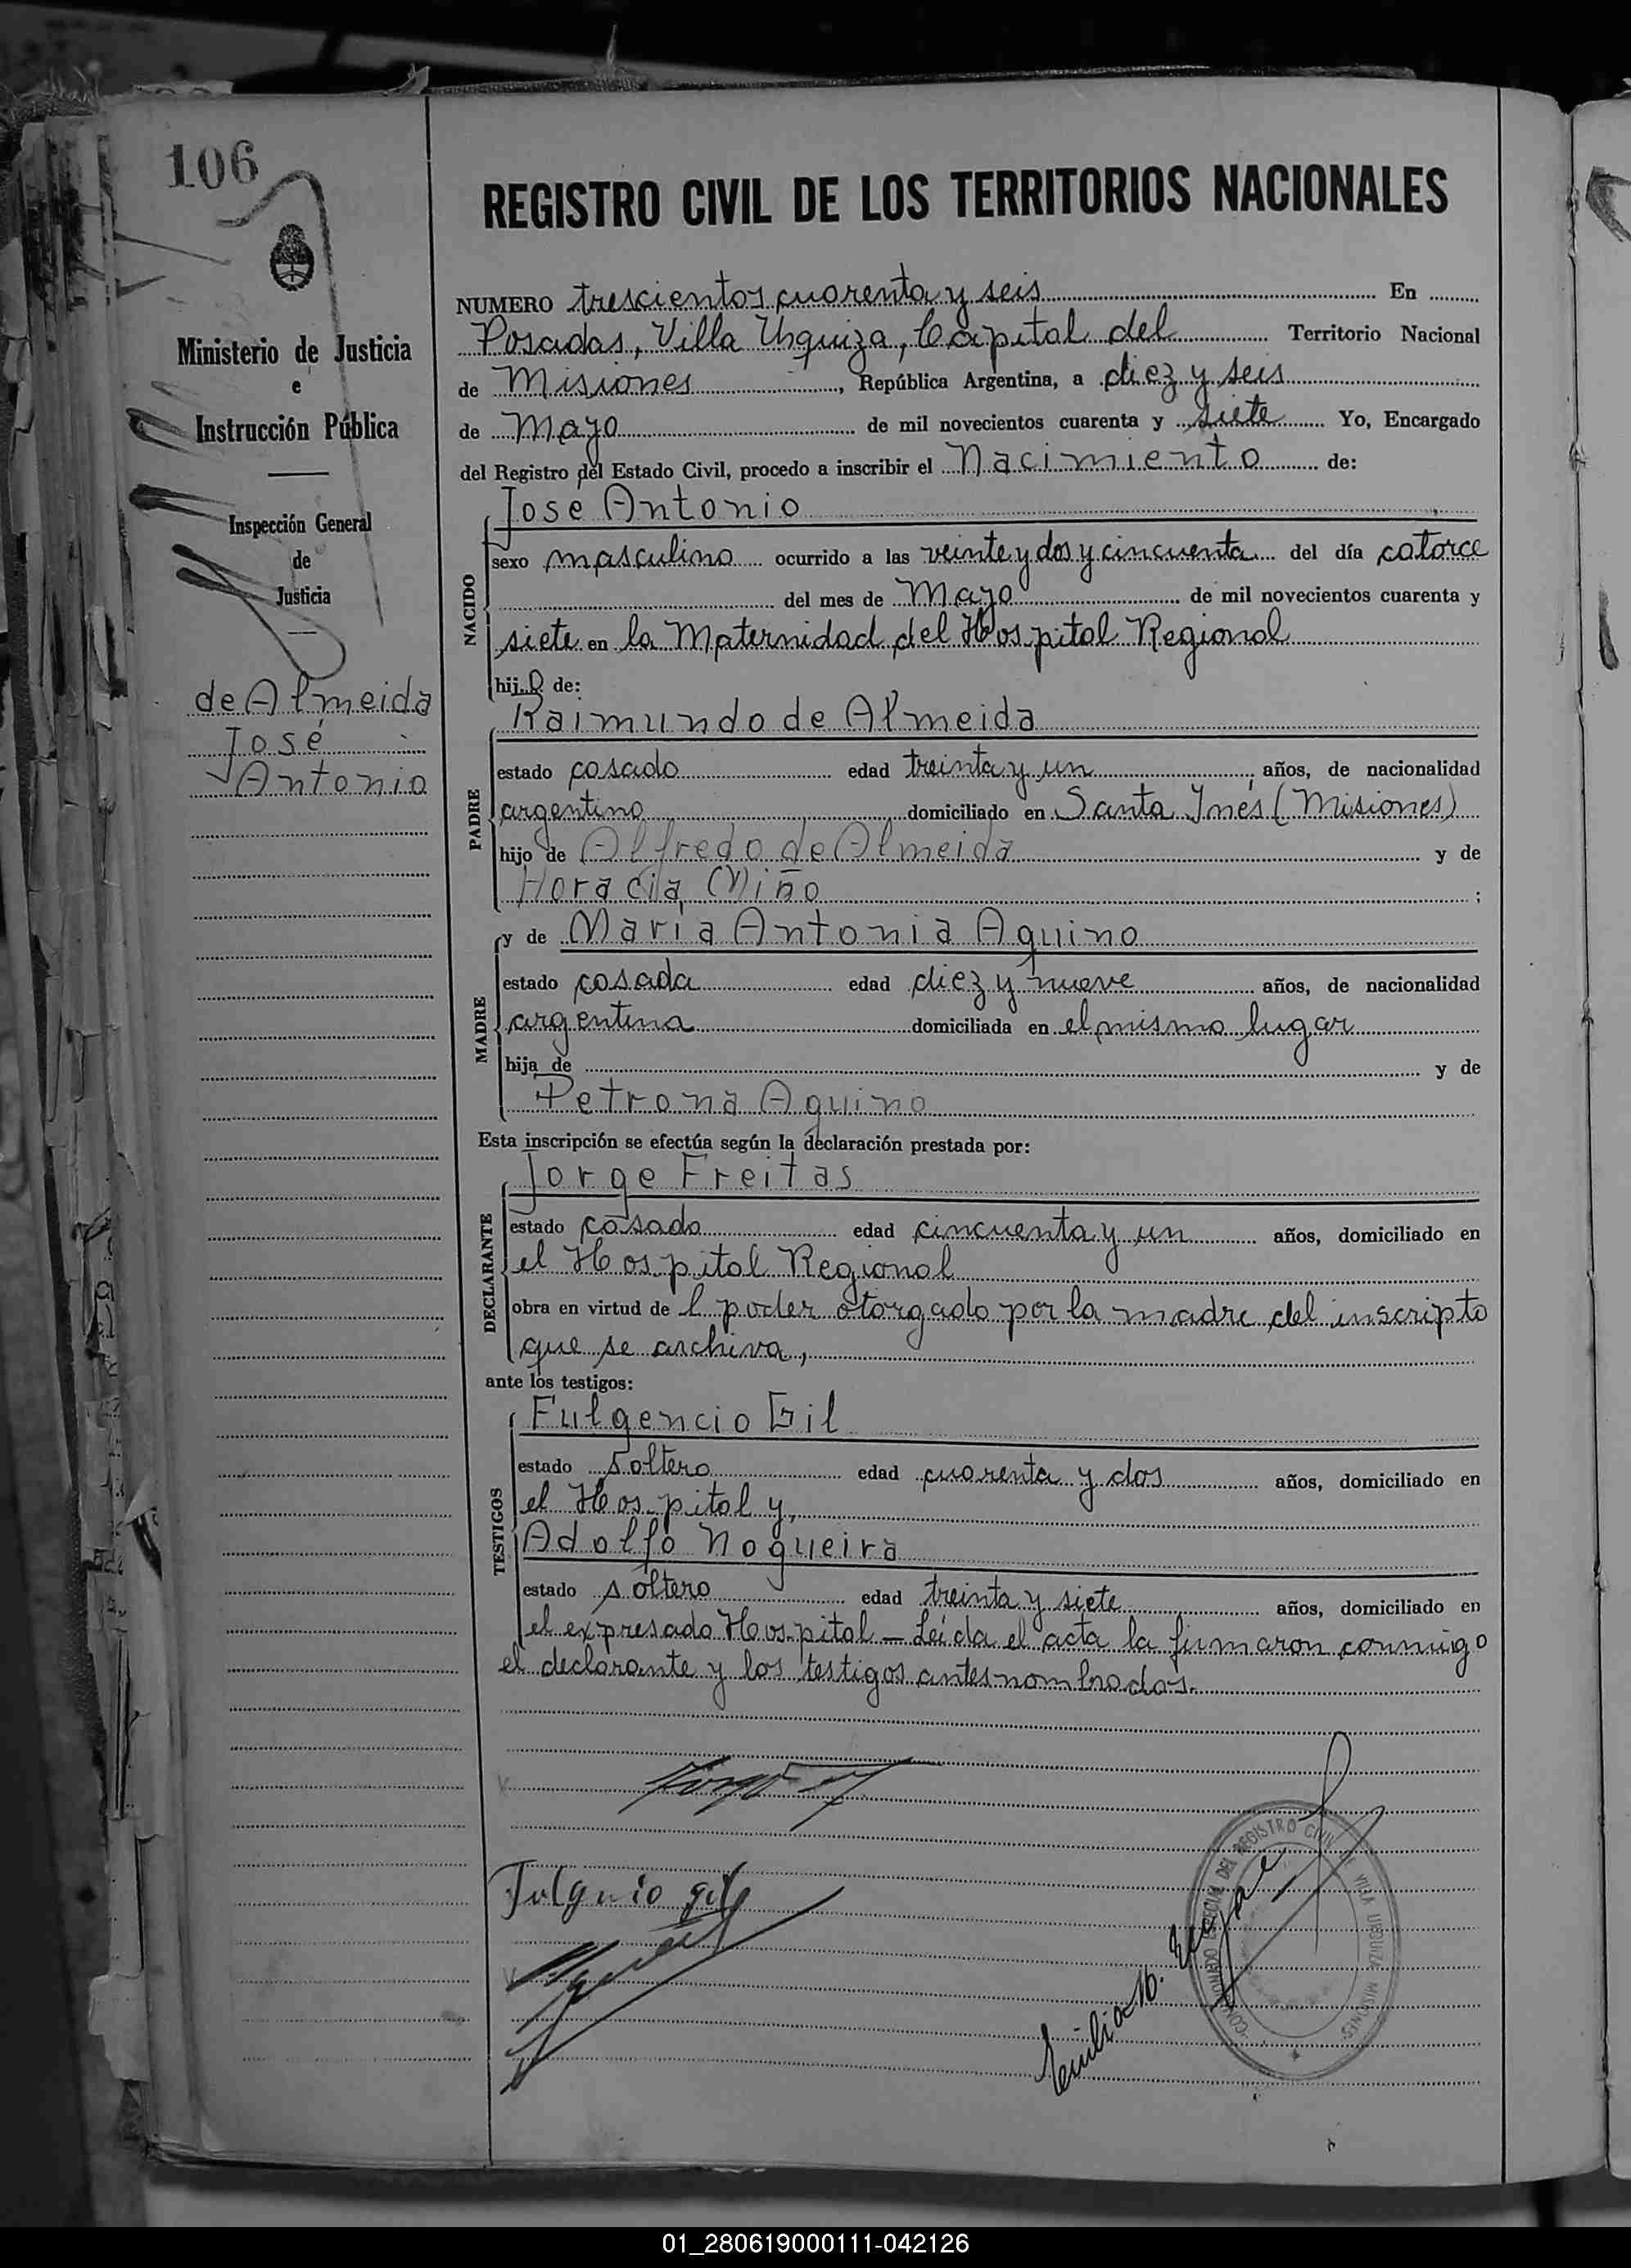 106
Ministerio de Justicia
e
Instrucción Pública
Inspección General
de
Justicia
de Almeida
José
Antonio
REGISTRO CIVIL DE LOS TERRITORIOS NACIONALES
NUMERO trescientos cuarenta y seis En
Posadas, Villa Urquiza, Capital del Territorio Nacional
de Misiones, República Argentina, a diez y seis
de Mayo de mil novecientos cuarenta y siete Yo, Encargado
del Registro del Estado Civil, procedo a inscribir el Nacimiento de:
NACIDO
Jose Antonio
sexo masculino ocurrido a las veinte y dos y cincuenta del día catorce
del mes de Mayo de mil novecientos cuarenta y
siete en la Maternidad del Hospital Regional
hijo de:
PADRE
Raimundo de Almeida
estado casado edad treinta y un años, de nacionalidad
argentino domiciliado en Santa Inés (Misiones)
hijo de Alfredo de Almeida y de
Horacia Miño ;
MADRE
y de María Antonia Aquino
estado casada edad diez y nueve años, de nacionalidad
argentina domiciliada en el mismo lugar
hija de y de
Petrona Aquino
Esta inscripción se efectúa según la declaración prestada por:
DECLARANTE
Jorge Freitas
estado casado edad cincuenta y un años, domiciliado en
el Hospital Regional
obra en virtud de l poder otorgado por la madre del inscripto
que se archiva,
ante los testigos:
TESTIGOS
Fulgencio Gil
estado soltero edad cuarenta y dos años, domiciliado en
el Hospital y,
Adolfo Nogueira
estado soltero edad treinta y siete años, domiciliado en
el expresado Hospital — Leída el acta la firmaron conmigo
el declarante y los testigos antes nombrados.
REGISTRO CIVIL
VILLA URQUIZA MISIONES
01_280619000111-042126